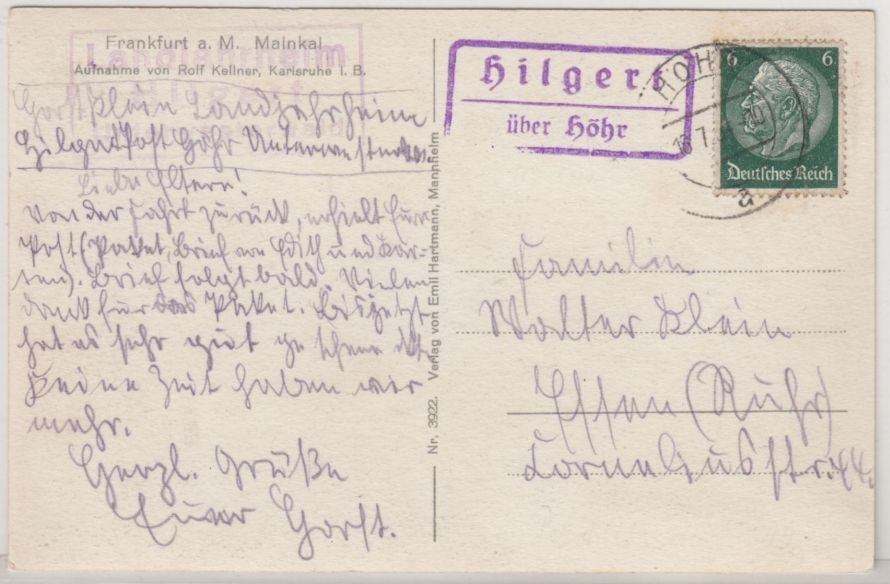 Frankfurt a. M. Mainkai
Aufnahme von Rolf Kellner, Karlsruhe i. B.
Landjahrheim
Hilgert
Horst Klein Landjahrheim
Hilgert Post Höhr Unterwesterw.
Liebe Eltern!
Von der Fahrt zurück, erhielt Eure
Post (Paket, Brief von Edith und Kar-
ten). Brief folgt bald. Vielen
Dank für das Paket. Bis jetzt
hat es sehr gut
Keine Zeit haben wir
mehr.
Herzl. Grüße
Euer Horst.
Nr. 3922. Verlag von Emil Hartmann, Mannheim
Hilgert
über Höhr
HÖHR
16.7.
a
6 6
Deutsches Reich
Familie
Walter Klein
Essen (Ruhr)
Corneliusstr. 44.